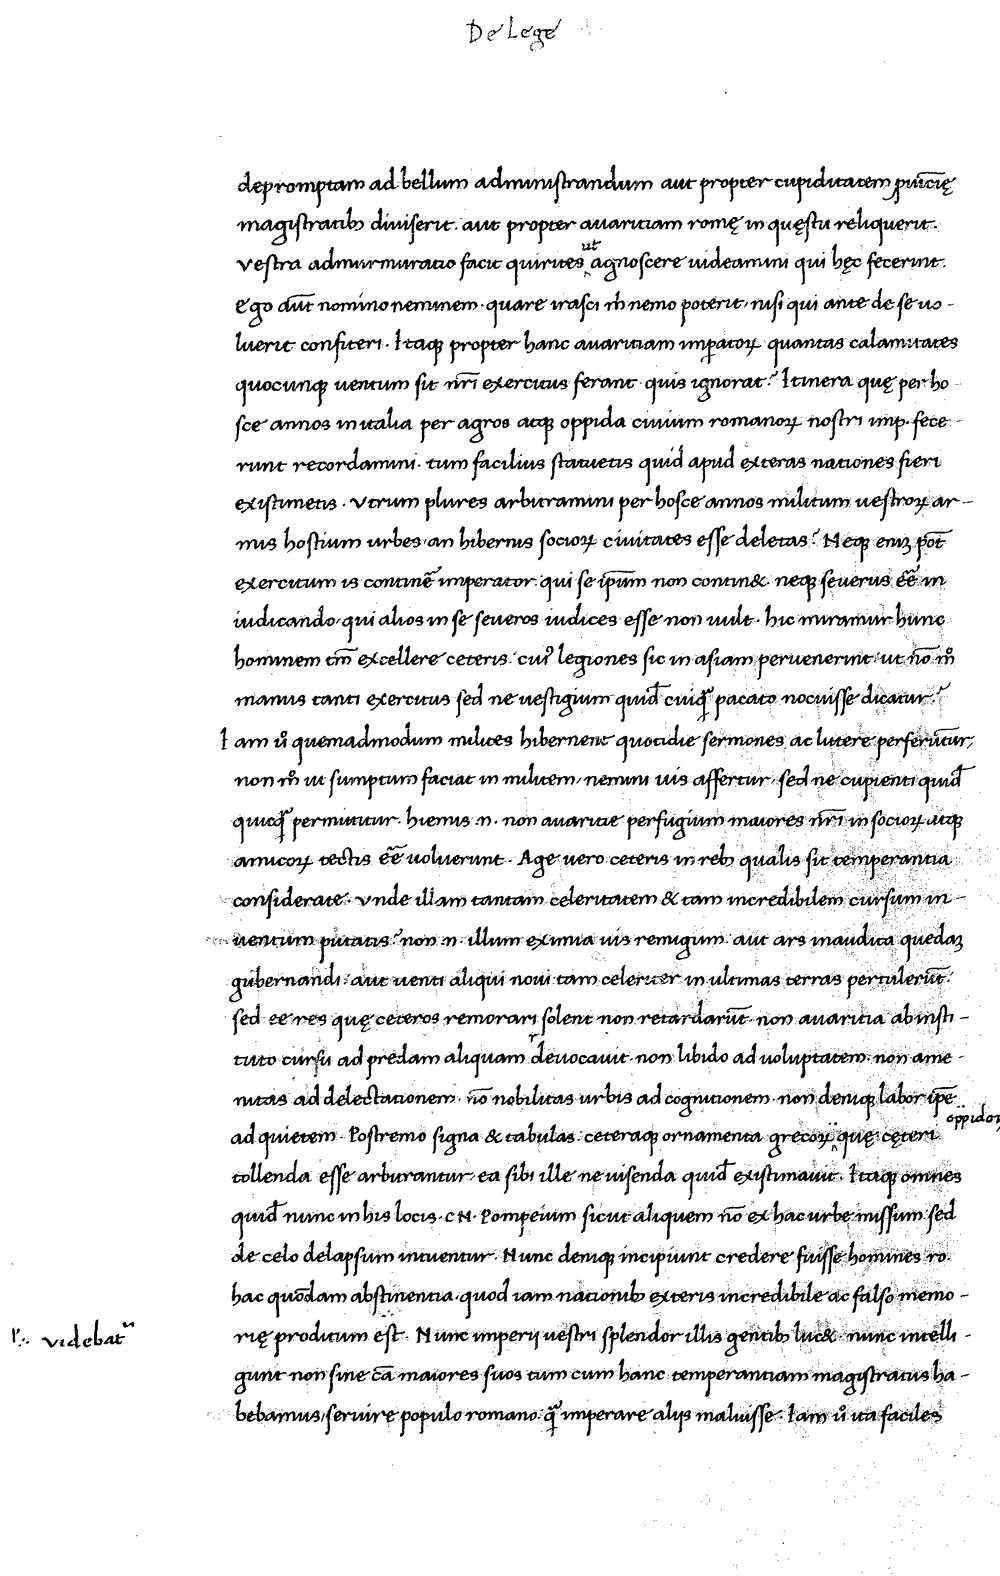 De Lege
depromptam ad bellum administrandum aut propter cupiditatem ꝓuīcię
magistratibꝫ diuiserit. aut propter auaritiam romę in quęstu reliquerit.
vestra admurmuratio facit quirites ut agnoscere uideamini qui hęc fecerint.
Ego aūt nomino neminem. quare irasci m̄ nemo poterit, nisi qui ante de se uo-
luerit confiteri. Itaqꝫ propter hanc auaritiam imꝑatoꝝ quantas calamitates
quocunqꝫ uentum sit nr̄i exercitus ferant quis ignorat? Itinera quę per ho-
sce annos in italia per agros atqꝫ oppida ciuium romanoꝝ nostri imp. fece-
runt recordamini. tum facilius statuetis quid apud exteras nationes fieri
existimetis. Vtrum plures arbitramini per hosce annos militum uestroꝝ ar-
mis hostium urbes an hibernis socioꝝ ciuitates esse deletas? Neqꝫ eniꝫ pōt
exercitum is continē imperator qui se ip̄um non contin&. neqꝫ seuerus eē in
iudicando, qui alios in se seueros iudices esse non uult. hic miramur hunc
hominem tm̄ excellere ceteris. cuiꝰ legiones sic in asiam peruenerint, ut nō mͦ
manus tanti exercitus sed ne uestigium quid̄ cuiqᷓ pacato nocuisse dicatur?
Iam uͦ quemadmodum milites hibernent quotidie sermones ac littere perferūtur,
non mͦ ut sumptum faciat in militem, nemini uis affertur, sed ne cupienti quid̄
quicqᷓ permittitur. hiemis .n. non auaritie perfugium maiores nr̄i in socioꝝ atqꝫ
amicoꝝ tectis eē uoluerunt. Age uero ceteris in rebꝫ qualis sit temperantia
considerate. Vnde illam tantam celeritatem & tam incredibilem cursum in-
uentum putatis? non .n. illum eximia uis remigum aut ars inaudita quedaꝫ
gubernandi. aut uenti aliqui noui tam celeriter in ultimas terras pertulerūt.
sed ee res quę ceteros remorari solent non retardarūt. non auaritia ab insti-
tuto cursu ad predam aliquam deuocauit. non libido ad uoluptatem. non ame-
nitas ad delectationem. nō nobilitas urbis ad cognitionem. non deniqꝫ labor ip̄e
oppidoꝝ
ad quietem. Postremo signa & tabulas ceteraqꝫ ornamenta grecoꝝ quę cęteri
tollenda esse arbitrantur, ea sibi ille ne uisenda quid̄ existimauit. Itaqꝫ omnes
quid̄ nunc in his locis. CN. Pompeium sicut aliquem nō ex hac urbe missum sed
de celo delapsum intuentur. Nunc deniqꝫ incipiunt credere fuisse homines ro.
hac quōdam abstinentia. quod iam nationibꝫ exteris incredibile ac falso memo-
rię proditum est. Nunc imperij uestri splendor illis gentibꝫ luc&. nunc intelli-
videbat᷑
gunt non sine cā maiores suos tum cum hanc temperantiam magistratus ha-
bebamus, seruire populo romano qᷓ imperare alijs maluisse. Iam uͦ ita faciles